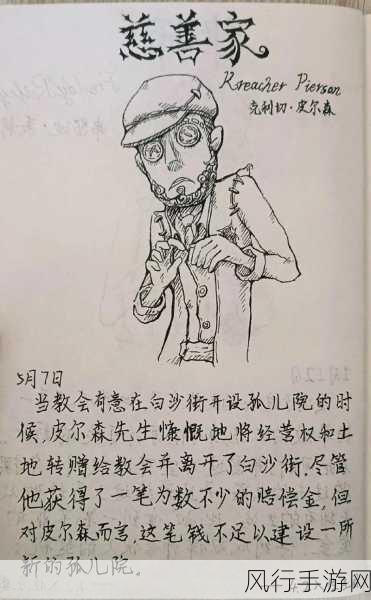 慈善家
Kreacher Pierson
克利切·皮尔森
5月7日
当教会有意在白沙街开设孤儿院的时
候,皮尔森先生慷慨地将经营权和土
地转赠给教会并离开了白沙街,尽管
他获得了一笔为数不少的赔偿金,但
对皮尔森而言,这笔钱不足以建设一所
新的孤儿院。
风行手游网